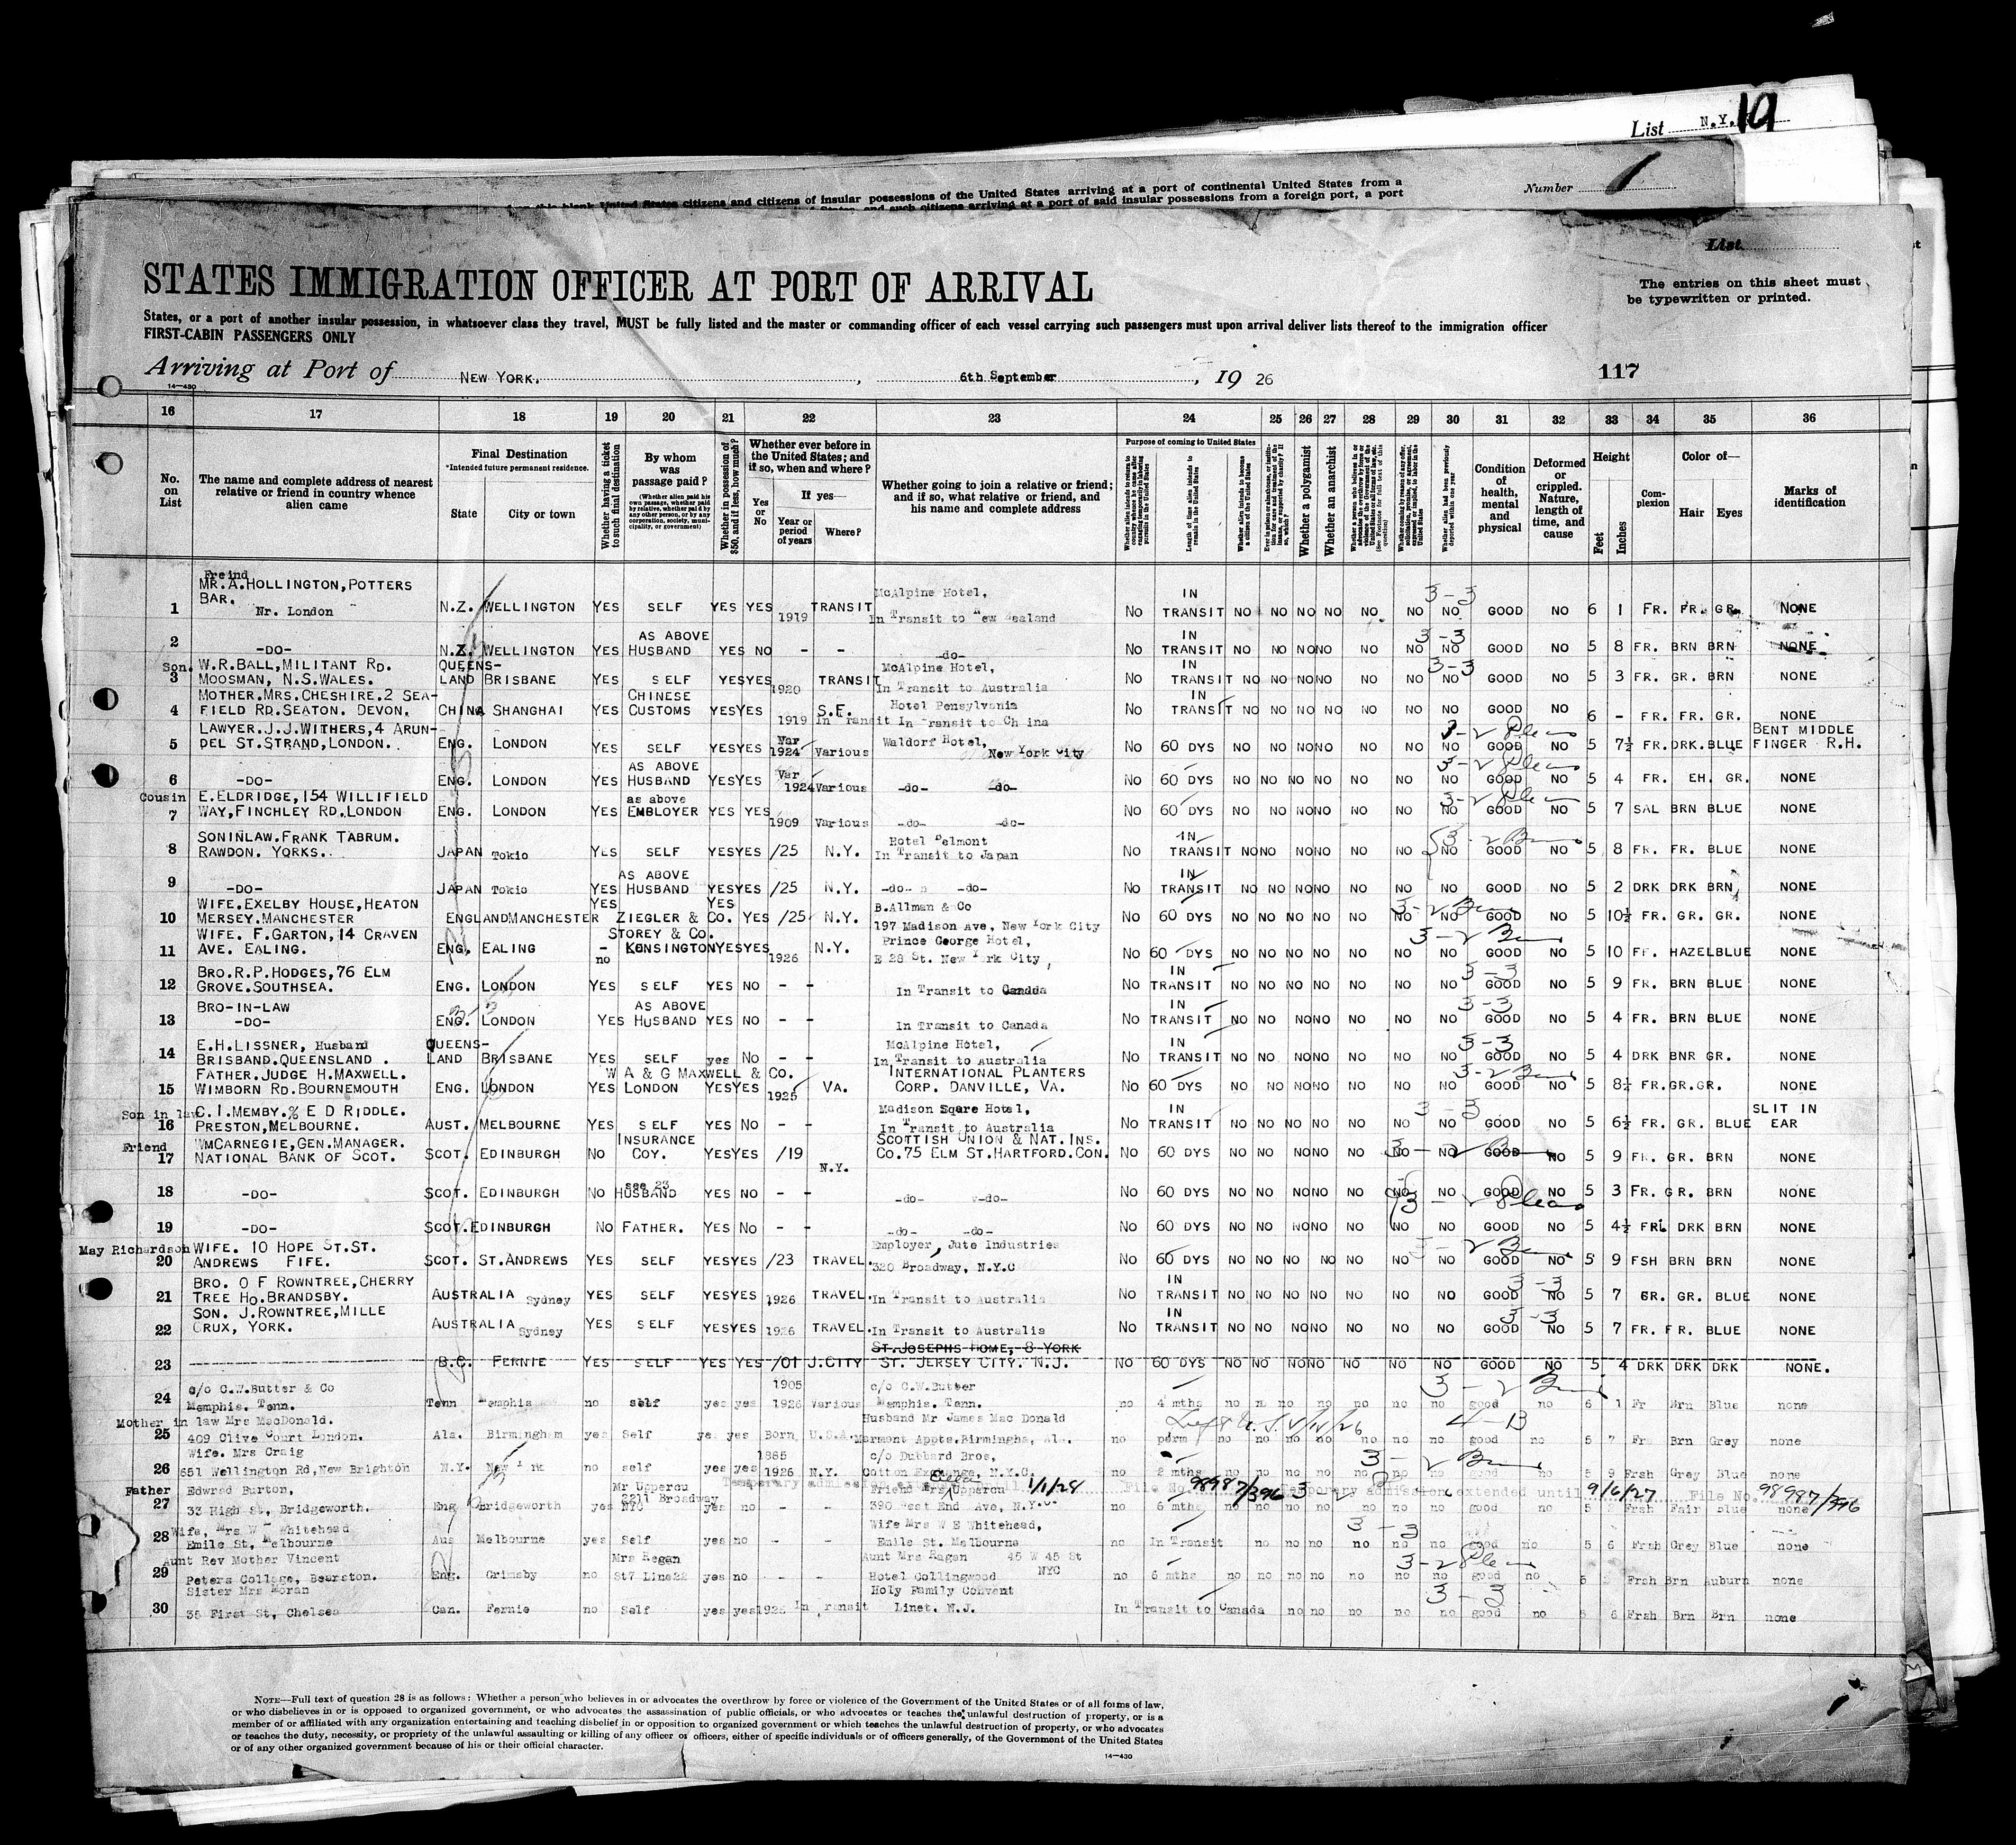 List N.Y. 19
Number 1
citizens and citizens of insular possessions of the United States arriving at a port of continental United States from a
and such citizens arriving at a port of said insular possessions from a foreign port, a port
List
STATES IMMIGRATION OFFICER AT PORT OF ARRIVAL
The entries on this sheet must
be typewritten or printed.
States, or a port of another insular possession, in whatsoever class they travel, MUST be fully listed and the master or commanding officer of each vessel carrying such passengers must upon arrival deliver lists thereof to the immigration officer
FIRST-CABIN PASSENGERS ONLY
Arriving at Port of NEW YORK. , 6th September , 19 26
117
14—430
16 17 18 19 20 21 22 23 24 25 26 27 28 29 30 31 32 33 34 35 36
No. on List
The name and complete address of nearest relative or friend in country whence alien came
Final Destination
*Intended future permanent residence.
State City or town
Whether having a ticket to such final destination
By whom was passage paid?
(Whether alien paid his own passage, whether paid by relative, whether paid by any other person, or by any corporation, society, municipality, or government)
Whether in possession of $50, and if less, how much?
Whether ever before in the United States; and if so, when and where?
Yes or No If yes— Year or period of years Where?
Whether going to join a relative or friend; and if so, what relative or friend, and his name and complete address
Purpose of coming to United States
Length of time alien intends to remain in the United States
Whether a polygamist
Whether an anarchist
Condition of health, mental and physical
Deformed or crippled. Nature, length of time, and cause
Height Feet Inches
Complexion
Color of— Hair Eyes
Marks of identification
Freind
MR.A.HOLLINGTON,POTTERS McAlpine Hotel, IN 3-3
BAR.
1 Nr. London N.Z. WELLINGTON YES SELF YES YES 1919 TRANSIT In Transit to New Zealand NO TRANSIT NO NO NO NO NO NO NO GOOD NO 6 1 FR. FR. GR. NONE
AS ABOVE IN 3-3
2 -DO- N.Z. WELLINGTON YES HUSBAND YES NO - - -do- NO TRANSIT NO NO NO NO NO NO NO GOOD NO 5 8 FR. BRN BRN NONE
Son. W.R.BALL,MILITANT RD. QUEENS- McAlpine Hotel, IN 3-3
3 MOOSMAN, N.S.WALES. LAND BRISBANE YES SELF YES YES 1920 TRANSIT In Transit to Australia NO TRANSIT NO NO NO NO NO NO NO GOOD NO 5 3 FR. GR. BRN NONE
MOTHER.MRS.CHESHIRE.2 SEA- CHINESE Hotel Pensylvania IN
4 FIELD RD.SEATON. DEVON. CHINA SHANGHAI YES CUSTOMS YES YES 1919 S.F. In Transit In Transit to China NO TRANSIT NO NO NO NO NO NO NO GOOD NO 6 - FR. FR. GR. NONE
LAWYER.J.J.WITHERS,4 ARUN- Waldorf Hotel, 3-2 Pleas BENT MIDDLE
5 DEL ST.STRAND,LONDON. ENG. LONDON YES SELF YES YES Var 1924 Various New York City NO 60 DYS NO NO NO NO NO NO NO GOOD NO 5 7½ FR. DRK. BLUE FINGER R.H.
AS ABOVE 3-2 Pleas
6 -DO- ENG. LONDON YES HUSBAND YES YES Var 1924 Various -do- -do- NO 60 DYS NO NO NO NO NO NO NO GOOD NO 5 4 FR. EH. GR. NONE
Cousin E.ELDRIDGE,154 WILLIFIELD as above 3-2 Pleas
7 WAY,FINCHLEY RD.LONDON ENG. LONDON YES EMPLOYER YES YES 1909 Various -do- -do- NO 60 DYS NO NO NO NO NO NO NO GOOD NO 5 7 SAL BRN BLUE NONE
SONINLAW.FRANK TABRUM. Hotel Belmont IN 3-2 Bus
8 RAWDON. YORKS. JAPAN Tokio YES SELF YES YES /25 N.Y. In Transit to Japan NO TRANSIT NO NO NO NO NO NO NO GOOD NO 5 8 FR. FR. BLUE NONE
AS ABOVE IN
9 -DO- JAPAN Tokio YES HUSBAND YES YES /25 N.Y. -do- -do- NO TRANSIT NO NO NO NO NO NO NO GOOD NO 5 2 DRK DRK BRN NONE
WIFE.EXELBY HOUSE,HEATON YES YES B.Allman & Co 3-2 Bus
10 MERSEY.MANCHESTER ENGLAND MANCHESTER ZIEGLER & CO. YES /25 N.Y. 197 Madison Ave, New York City NO 60 DYS NO NO NO NO NO NO NO GOOD NO 5 10½ FR. GR. GR. NONE
WIFE. F.GARTON,14 CRAVEN STOREY & CO. Prince George Hotel, 3-2 Bus
11 AVE. EALING. ENG. EALING - no KENSINGTON YES YES 1926 N.Y. E 28 St. New York City, NO 60 DYS NO NO NO NO NO NO NO GOOD NO 5 10 FR. HAZEL BLUE NONE
BRO.R.P.HODGES,76 ELM IN 3-3
12 GROVE.SOUTHSEA. ENG. LONDON YES SELF YES NO - - In Transit to Canada NO TRANSIT NO NO NO NO NO NO NO GOOD NO 5 9 FR. BRN BLUE NONE
BRO-IN-LAW 3-3 AS ABOVE IN 3-3
13 -DO- ENG. LONDON YES HUSBAND YES NO - - In Transit to Canada NO TRANSIT NO NO NO NO NO NO NO GOOD NO 5 4 FR. BRN BLUE NONE
E.H.LISSNER, Husband QUEENS- McAlpine Hotel, IN 3-3
14 BRISBAND.QUEENSLAND . LAND BRISBANE YES SELF yes NO - - In Transit to Australia NO TRANSIT NO NO NO NO NO NO NO GOOD NO 5 4 DRK BNR GR. NONE
FATHER.JUDGE H.MAXWELL. W A & G MAXWELL & CO. INTERNATIONAL PLANTERS 3-2 Bus
15 WIMBORN RD.BOURNEMOUTH ENG. LONDON YES LONDON YES YES 1925 VA. CORP. DANVILLE, VA. NO 60 DYS NO NO NO NO NO NO NO GOOD NO 5 8½ FR. GR. GR. NONE
Son in law C.I.MEMBY.% E D RIDDLE. Madison Sqare Hotel, IN 3-3 SLIT IN
16 PRESTON,MELBOURNE. AUST. MELBOURNE YES SELF YES NO - - In Transit to Australia NO TRANSIT NO NO NO NO NO NO NO GOOD NO 5 6½ FR. GR. BLUE EAR
Friend WMCARNEGIE,GEN.MANAGER. INSURANCE SCOTTISH UNION & NAT. INS.
17 NATIONAL BANK OF SCOT. SCOT. EDINBURGH NO COY. YES YES /19 N.Y. CO.75 ELM ST.HARTFORD.CON. NO 60 DYS NO NO NO NO NO NO NO GOOD NO 5 9 FR. GR. BRN NONE
see 23
18 -DO- SCOT. EDINBURGH NO HUSBAND YES NO - - -do- -do- NO 60 DYS NO NO NO NO NO NO NO GOOD NO 5 3 FR. GR. BRN NONE
3-2 Pleas
19 -DO- SCOT. EDINBURGH NO FATHER. YES NO - - -do- -do- NO 60 DYS NO NO NO NO NO NO NO GOOD NO 5 4½ FR. DRK BRN NONE
May Richardson WIFE. 10 HOPE ST.ST. Employer, Jute Industries 3-2 Bus
20 ANDREWS FIFE. SCOT. ST.ANDREWS YES SELF YES YES /23 TRAVEL. 320 Broadway, N.Y.C NO 60 DYS NO NO NO NO NO NO NO GOOD NO 5 9 FSH BRN BRN NONE
BRO. O F ROWNTREE,CHERRY IN 3-3
21 TREE HO.BRANDSBY. AUSTRALIA Sydney YES SELF YES YES 1926 TRAVEL. In Transit to Australia NO TRANSIT NO NO NO NO NO NO NO GOOD NO 5 7 GR. GR. BLUE NONE
SON. J.ROWNTREE,MILLE IN 3-3
22 CRUX, YORK. AUSTRALIA Sydney YES SELF YES YES 1926 TRAVEL. In Transit to Australia NO TRANSIT NO NO NO NO NO NO NO GOOD NO 5 7 FR. FR. BLUE NONE
ST.JOSEPHS HOME, 8 YORK
23 B.C. FERNIE YES SELF YES YES /01 J.CITY ST. JERSEY CITY. N.J. NO 60 DYS NO NO NO NO NO NO NO GOOD NO 5 4 DRK DRK DRK NONE.
c/o C.W.Butter & Co 1905 c/o C.W.Butter 3-2 Bus
24 Memphis. Tenn. Tenn Memphis no self yes yes 1926 Various Memphis. Tenn. no 4 mths no no no no no no no good no 6 1 Fr Brn Blue none
Mother in law Mrs MacDonald. Husband Mr James Mac Donald Left U.S. 4-B
25 409 Clive Court London. Ala. Birmingham yes Self yes yes Born U.S.A. Marmont Appts.Birmingha, Ala. no perm no no no no no no no good no 5 7 Fr Brn Grey none
Wife. Mrs Craig 1885 c/o Dubbard Bros, 3-2 Bus
26 651 Wellington Rd,New Brighton N.Y. New York no self yes yes 1926 N.Y. Cotton Exchange, N.Y.C. no 2 mths no no no no no no no good no 5 9 Frsh Grey Blue none
Father Edwrad Burton, Mr Uppercu 2211 Broadway Friend Mrs Uppercu 1/1/28 File No. 98987/396 Temporary admission extended until 9/6/27 File No. 98987/396
27 33 High St, Bridgeworth. Eng Bridgeworth yes NYC yes no - - 390 West End Ave, N.Y.C. no 6 mths no no no no no no no good no 5 Frsh Fair blue none
Wife, Mrs W E Whitehead Wife Mrs W E Whitehead, 3-3
28 Emile St, Melbourne Aus Melbourne yes Self yes no - - Emile St. Melbourne no In Transit no no no no no no good no 5 6 Frsh Grey Blue none
Aunt Rev Mother Vincent Mrs Regan Aunt Mrs Ragan 45 W 45 St 3-2 Pleas
29 Peters College, Bearston. Eng. Grimsby no yes no - - Hotel Collingwood NYC no 6 mths no no no no no no no good no 5 Frsh Brn Auburn none
Sister Mrs Moran Holy Family Convent 3-3
30 35 First St, Chelsea Can. Fernie no Self yes yes In Transit Linet. N.J. In Transit to Canada no no no no no good no 5 6 Frsh Brn Brn none
NOTE—Full text of question 28 is as follows: Whether a person who believes in or advocates the overthrow by force or violence of the Government of the United States or of all forms of law,
or who disbelieves in or is opposed to organized government, or who advocates the assassination of public officials, or who advocates or teaches the unlawful destruction of property, or is a
member of or affiliated with any organization entertaining and teaching disbelief in or opposition to organized government or which teaches the unlawful destruction of property, or who advocates
or teaches the duty, necessity, or propriety of the unlawful assaulting or killing of any officer or officers, either of specific individuals or of officers generally, of the Government of the United States
or of any other organized government because of his or their official character.
14—430